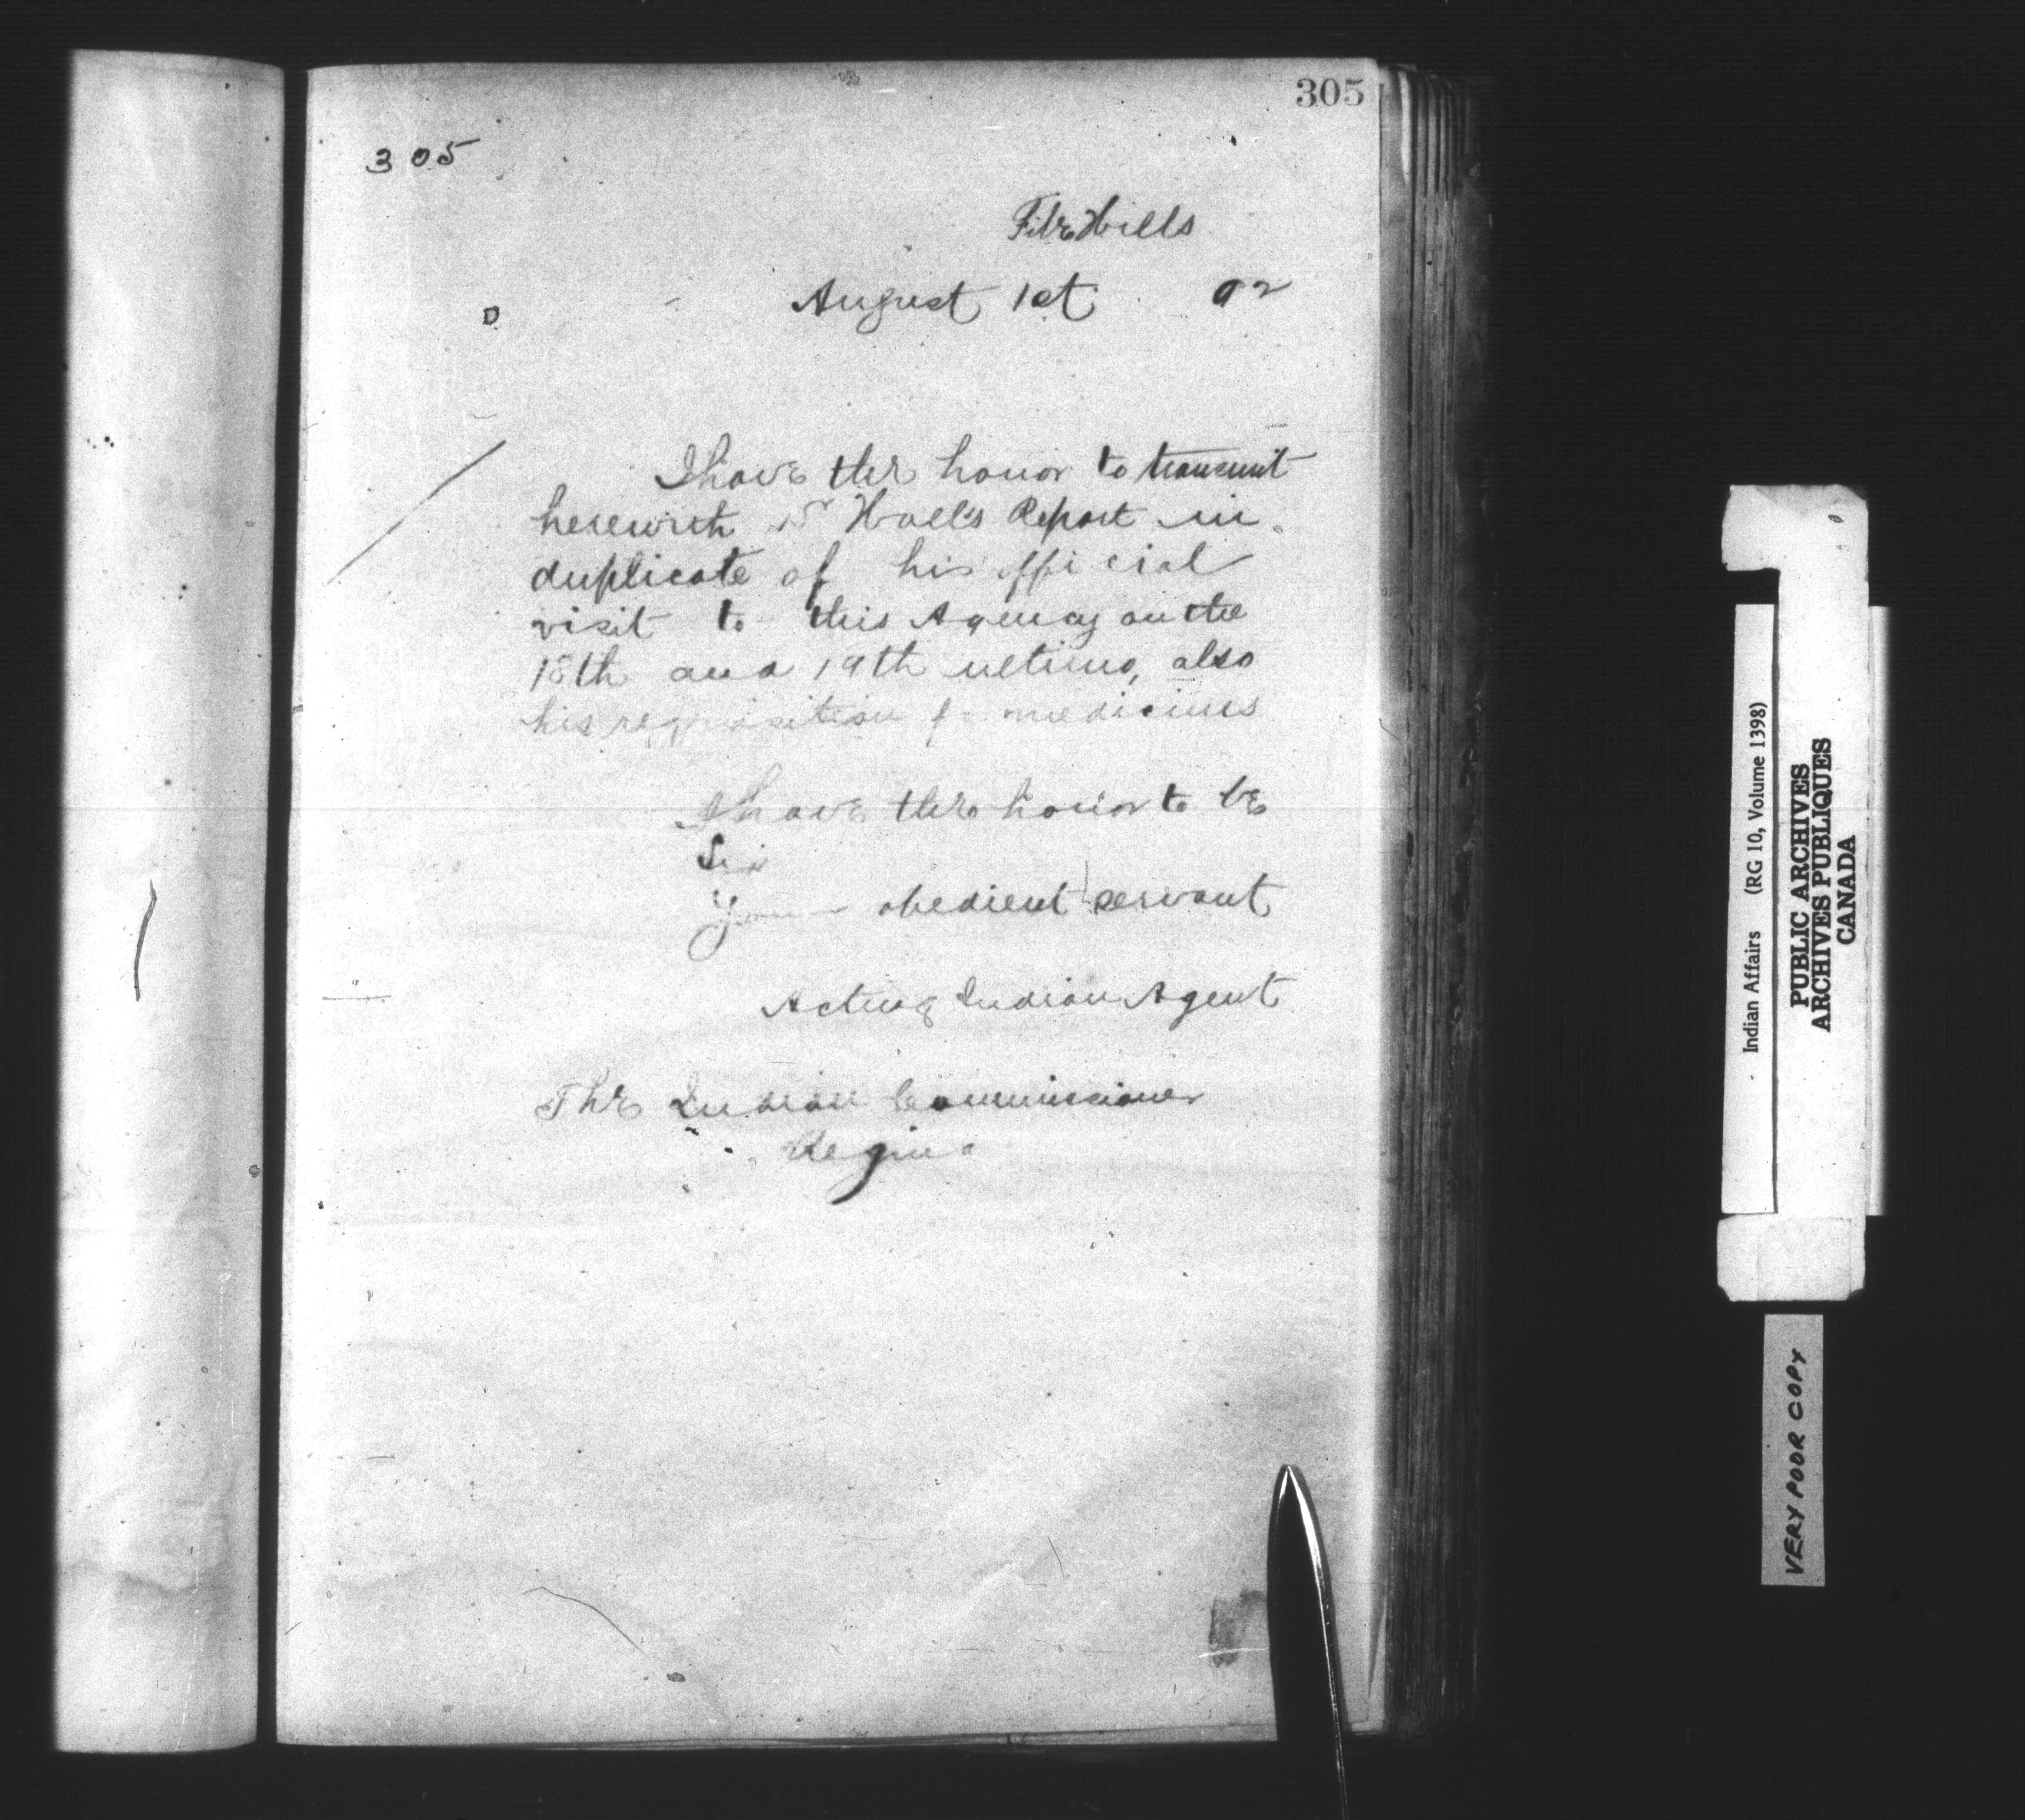 305
305
File Hills
August 1st 92
I have the honor to transmit
herewith Dr Hall's Report in
duplicate of his official
visit to this Agency on the
18th and 19th ultimo, also
his requisition for medicines
I have the honor to be
Sir
Your obedient servant
Acting Indian Agent
The Indian Commissioner
Regina
Indian Affairs (RG 10, Volume 1398)
PUBLIC ARCHIVES
ARCHIVES PUBLIQUES
CANADA
VERY POOR COPY